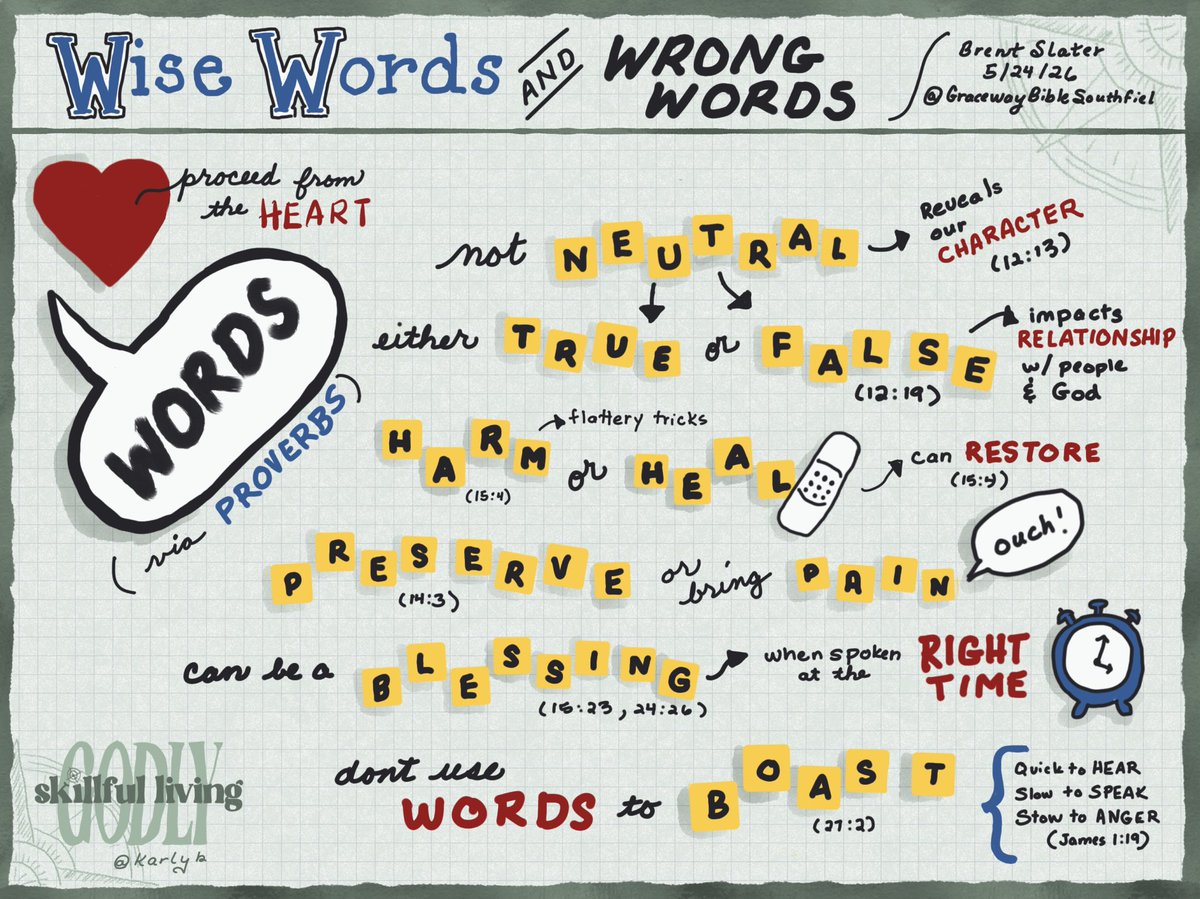 Wise Words AND WRONG WORDS
Brent Slater
5/24/26
@GracewayBibleSouthfiel
proceed from
the HEART
WORDS
(via PROVERBS)
not NEUTRAL
Reveals
our
CHARACTER
(12:13)
either TRUE or FALSE
(12:19)
impacts
RELATIONSHIP
w/ people
& God
HARM or HEAL
(15:4)
flattery tricks
can RESTORE
(15:4)
PRESERVE or bring PAIN
(14:3)
ouch!
can be a BLESSING
(15:23, 24:26)
when spoken
at the
RIGHT
TIME
dont use
WORDS to BOAST
(27:2)
Quick to HEAR
Slow to SPEAK
Slow to ANGER
(James 1:19)
GODLY
skillful living
GODLY
@karlyb